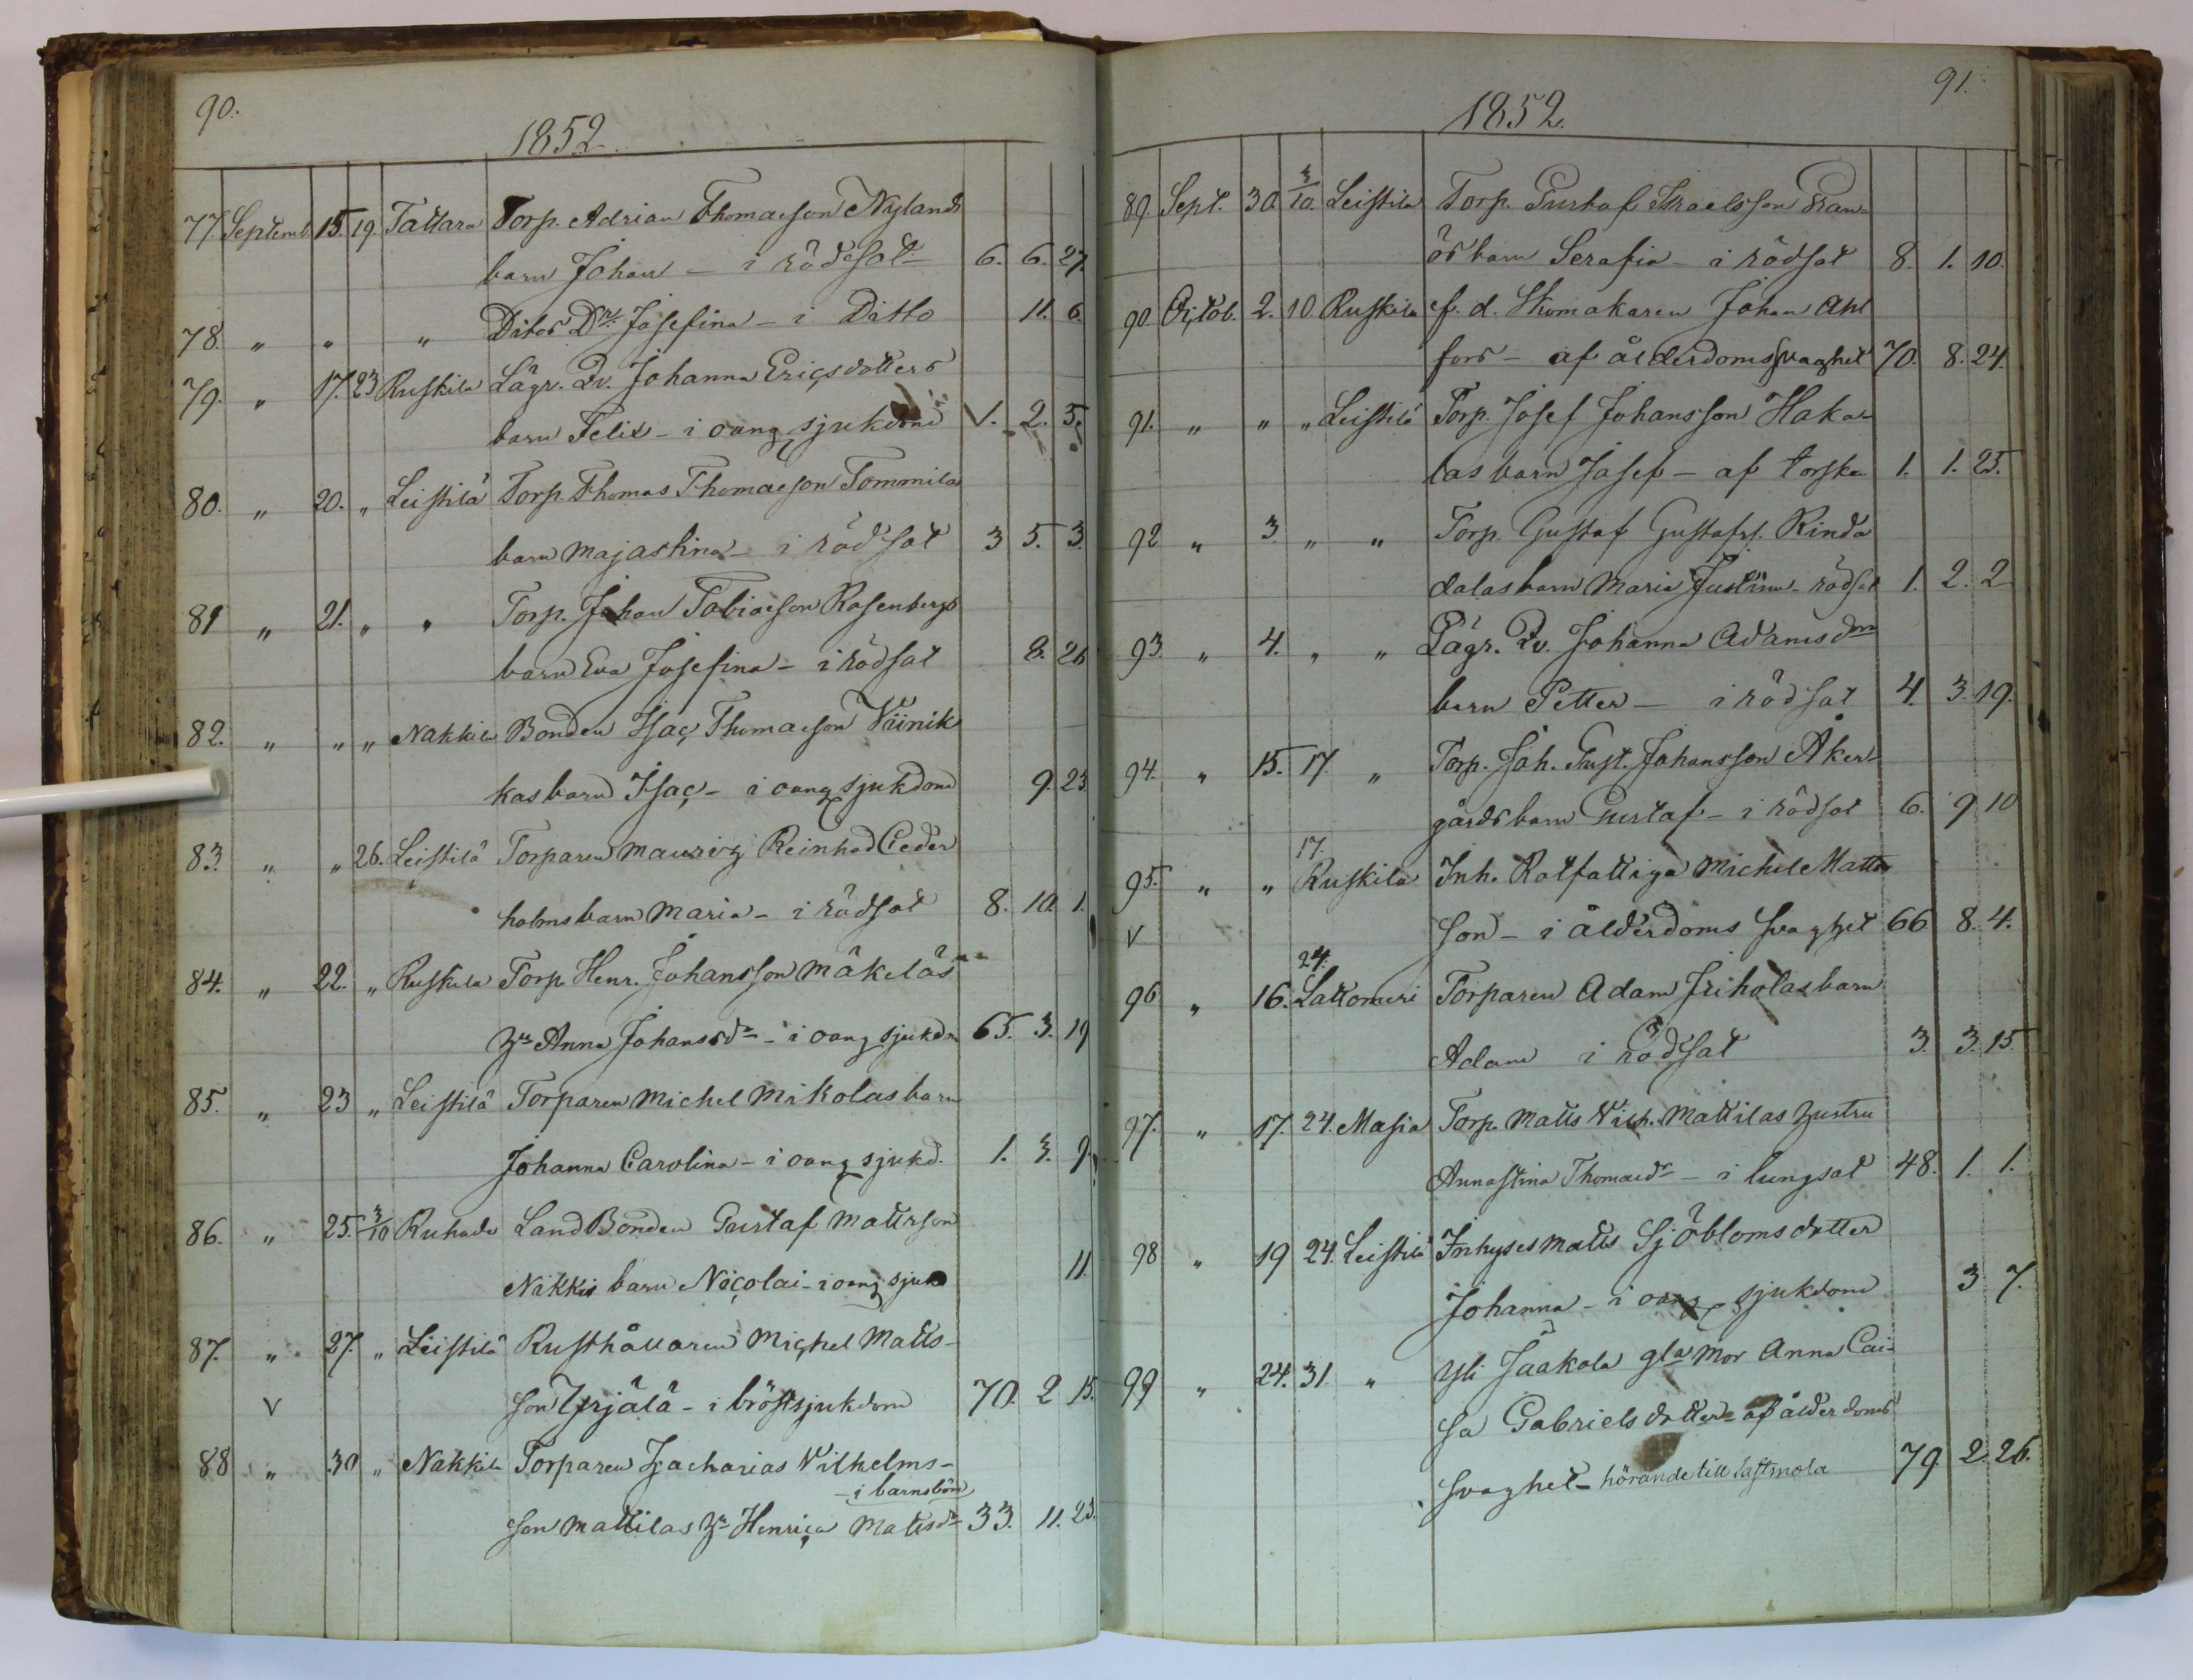 90.
1852.
77. Septemb. 15. 19. Tattara Torp. Adrian Thomasson Nylands
barn Johan – i rödsot 6. 6. 27.
78. " " " Ditos Dr. Josefina – i Ditto 11. 6.
79. " 17. 23 Ruskila Lägr. Qv. Johanna Ericsdotters
barn Felix – i oang sjukdom V. 2. 5.
80. " 20. " Leistilä Torp. Thomas Thomasson Tommila
barn Majastina – i rödsot 3 5. 3.
81 " 21. " " Torp. Johan Tobiasson Rosenbergs
barn Eva Josefina – i rödsot 8. 26
82. " " " Nakkila Bonden Isac Thomasson Viinik
kas barn Isac – i oang sjukdom 9. 23
83. " " 26. Leistilä Torparen Mauriz Reinhad Ceder
holms barn Maria – i rödsot 8. 10. 1.
84. " 22. " Ruskila Torp Henr. Johansson Mäkeläs
hu Anna Johansdr – i oang sjukdm 65. 3. 19
85. " 23 " Leistilä Torparen Michel Mikolas barn
Johanna Carolina – i oang sjukd. 1. 3. 9.
86. " 25. 3/10 Ruhade LandBonden Gustaf Mattsson
Nikkis barn Nicolai – i oang sjuk 11.
87. " 27. " Leistilä Rusthållaren Michel Matts–
V son Yrjälä – i bröstsjukdom 70. 2 15.
88 " 30 " Nakkila Torparen Zacharias Wilhelms–
– i barnsbörd
son Mattilas hu Henrica Matsdr 33. 11. 23.
91.
1852.
89. Sept. 30. 3/10. Leistila Torp. Gustaf Israelsson Gran–
ös barn Serafia – i rödsot 8. 1. 10.
90. Octob. 2. 10. Ruskila f. d. Skomakaren Johan Ahl
fors – af ålderdomssvaghet 70. 8. 24.
91. " " " Leistilä Torp. Josef Johansson Haka
las barn Josef – af torsken 1. 1. 25.
92 " 3. " " Torp. Gustaf Gustafss. Rinda
dalas barn Maria Justina – rödsot 1. 2. 2
93. " 4. " " Lägr. Qv. Johanna Adamsdrs
barn Petter – i rödsot 4. 3. 19.
94. " 15. 17. " Torp. Joh. Gust. Johansson Åker
gårds barn Gustaf – i rödsot 6. 9 10
17.
95. " " Ruskila Inh. Rotfattiga Michel Matts
V son – i ålderdoms svaghet 66 8. 4.
24.
96 " 16. Lattomeri Torparen Adam Friholas barn
Adam i rödsot 3. 3. 15.
97. " 17. 24. Masia Torp. Matts Wilh. Mattilas hustru
Annastina Thomasdr – i lungsot 48. 1. 1.
98 " 19 24. Leistilä Inhyses Matts Sjöbloms dotter
Johanna – i oang sjukdom 3 7.
99 " 24. 31. " Yli Jaakola gla mor Anna Cai–
sa Gabriels dotter – af ålderdoms
svaghet – hörande till 79. 2. 26.